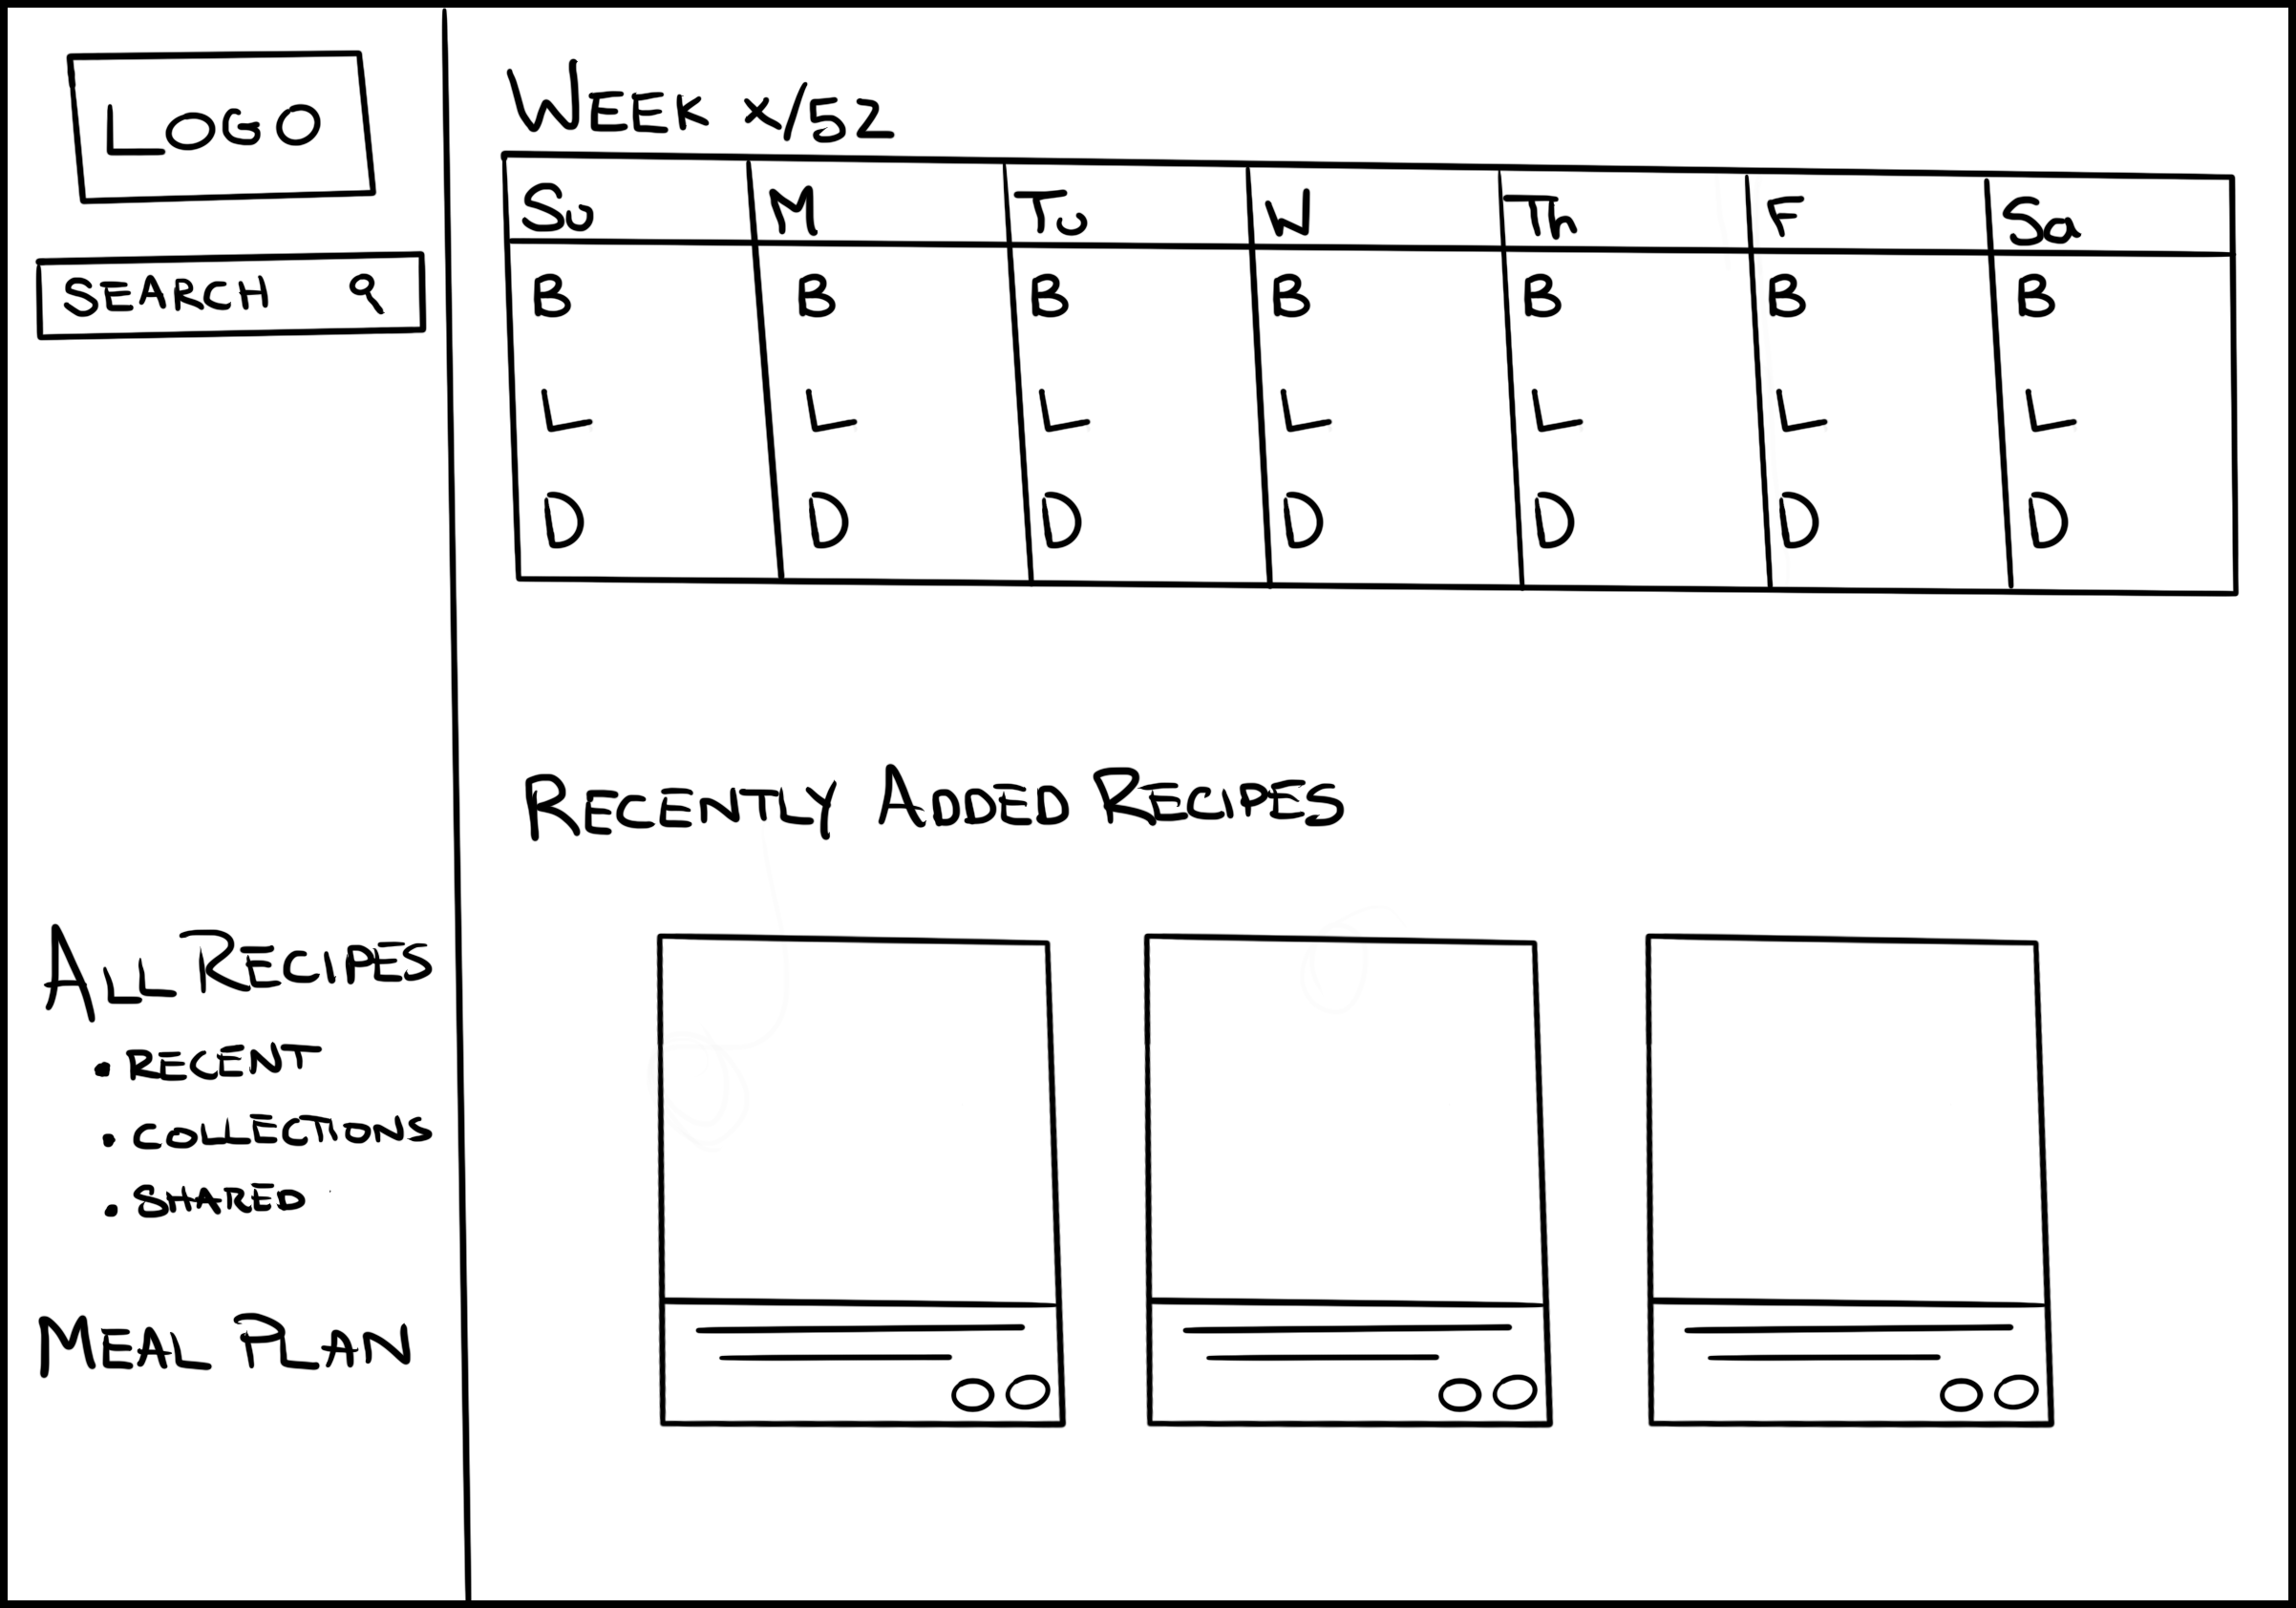 LOGO
SEARCH
ALL RECIPES
• RECENT
• COLLECTIONS
• SHARED
MEAL PLAN
WEEK x/52
Su M Tu W Th F Sa
B B B B B B B
L L L L L L L
D D D D D D D
RECENTLY ADDED RECIPES